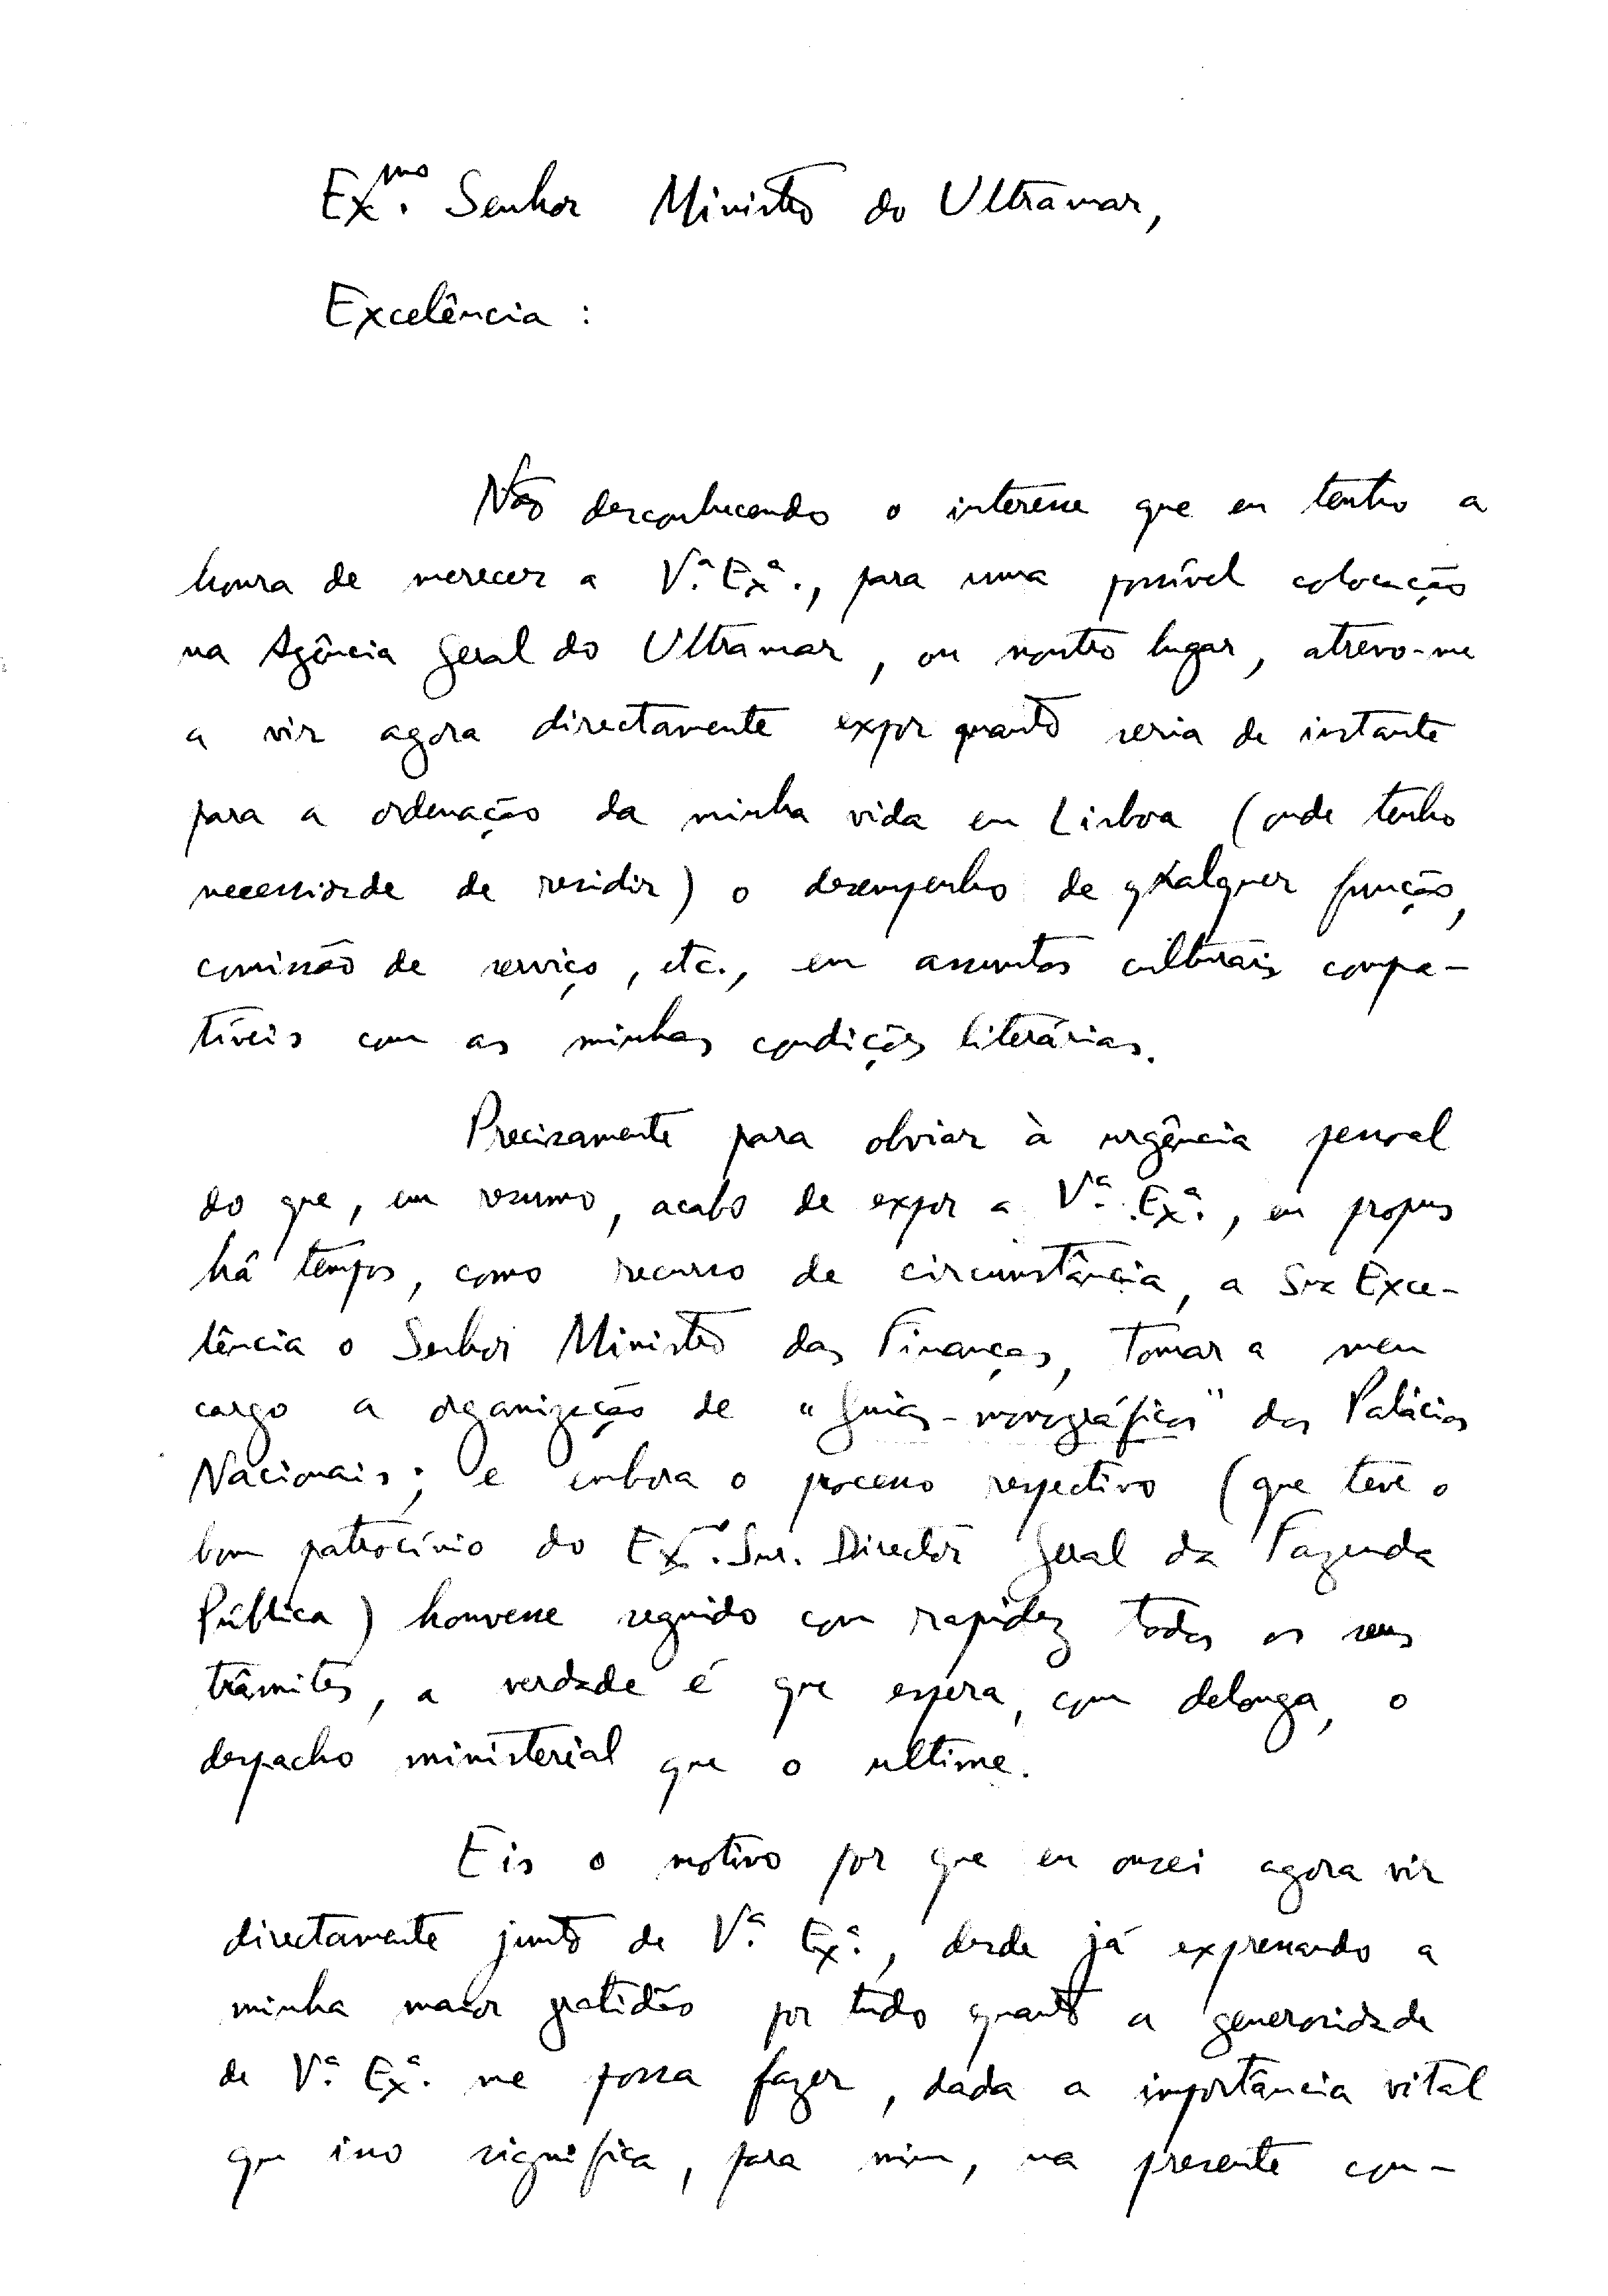 Ex.mo Senhor Ministro do Ultramar,
Excelência :
Não desconhecendo o interesse que eu tenho a
honra de merecer a V.ª Ex.ª, para uma possível colocação
na Agência Geral do Ultramar, ou noutro lugar, atrevo-me
a vir agora directamente expor quanto seria de instante
para a ordenação da minha vida em Lisboa (onde tenho
necessidade de residir) o desempenho de qualquer função,
comissão de serviço, etc., em assuntos culturais compa-
tíveis com as minhas condições literárias.
Precisamente para obviar à urgência pessoal
do que, em resumo, acabo de expor a V.ª Ex.ª, eu propus
há tempos, como recurso de circunstância, a Sua Exce-
lência o Senhor Ministro das Finanças, tomar a meu
cargo a organização de "Guias-monográficos" dos Palácios
Nacionais; e embora o processo respectivo (que teve o
bom patrocínio do Ex.mo Snr. Director Geral da Fazenda
Pública) houvesse seguido com rapidez todos os seus
trâmites, a verdade é que espera, com delonga, o
despacho ministerial que o ultime.
Eis o motivo por que eu ousei agora vir
directamente junto de V.ª Ex.ª, desde já expressando a
minha maior gratidão por tudo quanto a generosidade
de V.ª Ex.ª me possa fazer, dada a importância vital
que isso significa, para mim, na presente con-